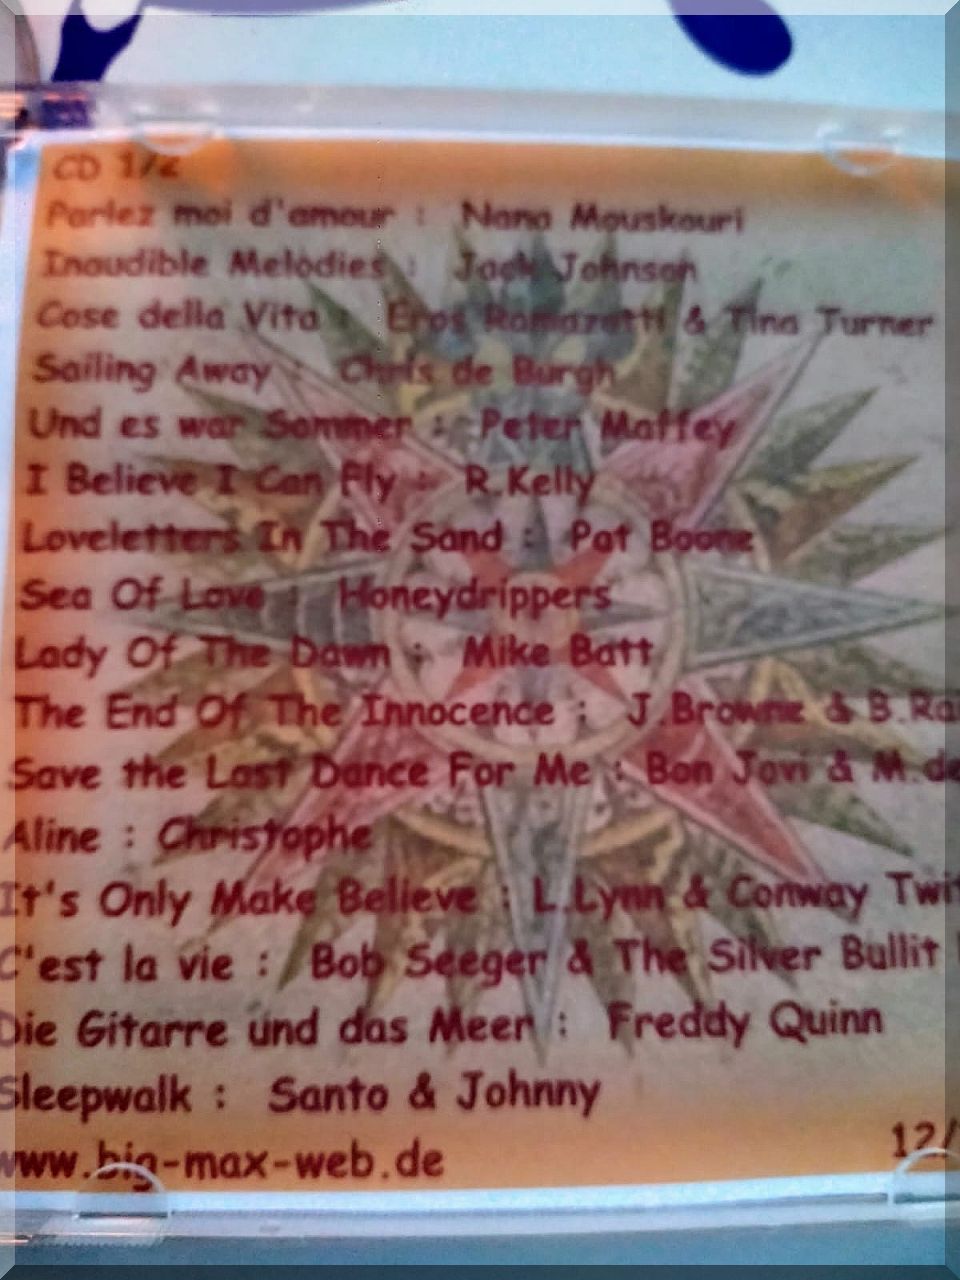 CD 1/2
Parlez moi d'amour : Nana Mouskouri
Inaudible Melodies : Jack Johnson
Cose della Vita : Eros Ramazotti & Tina Turner
Sailing Away : Chris de Burgh
Und es war Sommer : Peter Maffey
I Believe I Can Fly : R.Kelly
Loveletters In The Sand : Pat Boone
Sea Of Love : Honeydrippers
Lady Of The Dawn : Mike Batt
The End Of The Innocence : J.Browne & B.Rai
Save the Last Dance For Me : Bon Jovi & M.de
Aline : Christophe
It's Only Make Believe : L.Lynn & Conway Twit
C'est la vie : Bob Seeger & The Silver Bullit
Die Gitarre und das Meer : Freddy Quinn
Sleepwalk : Santo & Johnny
www.big-max-web.de
12/